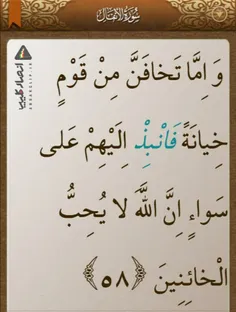 سُورَةُ الأَنفَال
وَ اِمَّا تَخافَنَّ مِنْ قَوْمٍ
خِيانَةً فَانْبِذْ اِلَيْهِمْ عَلى
سَواءٍ اِنَّ اللَّهَ لا يُحِبُّ
الْخائِنِينَ ﴿٥٨﴾